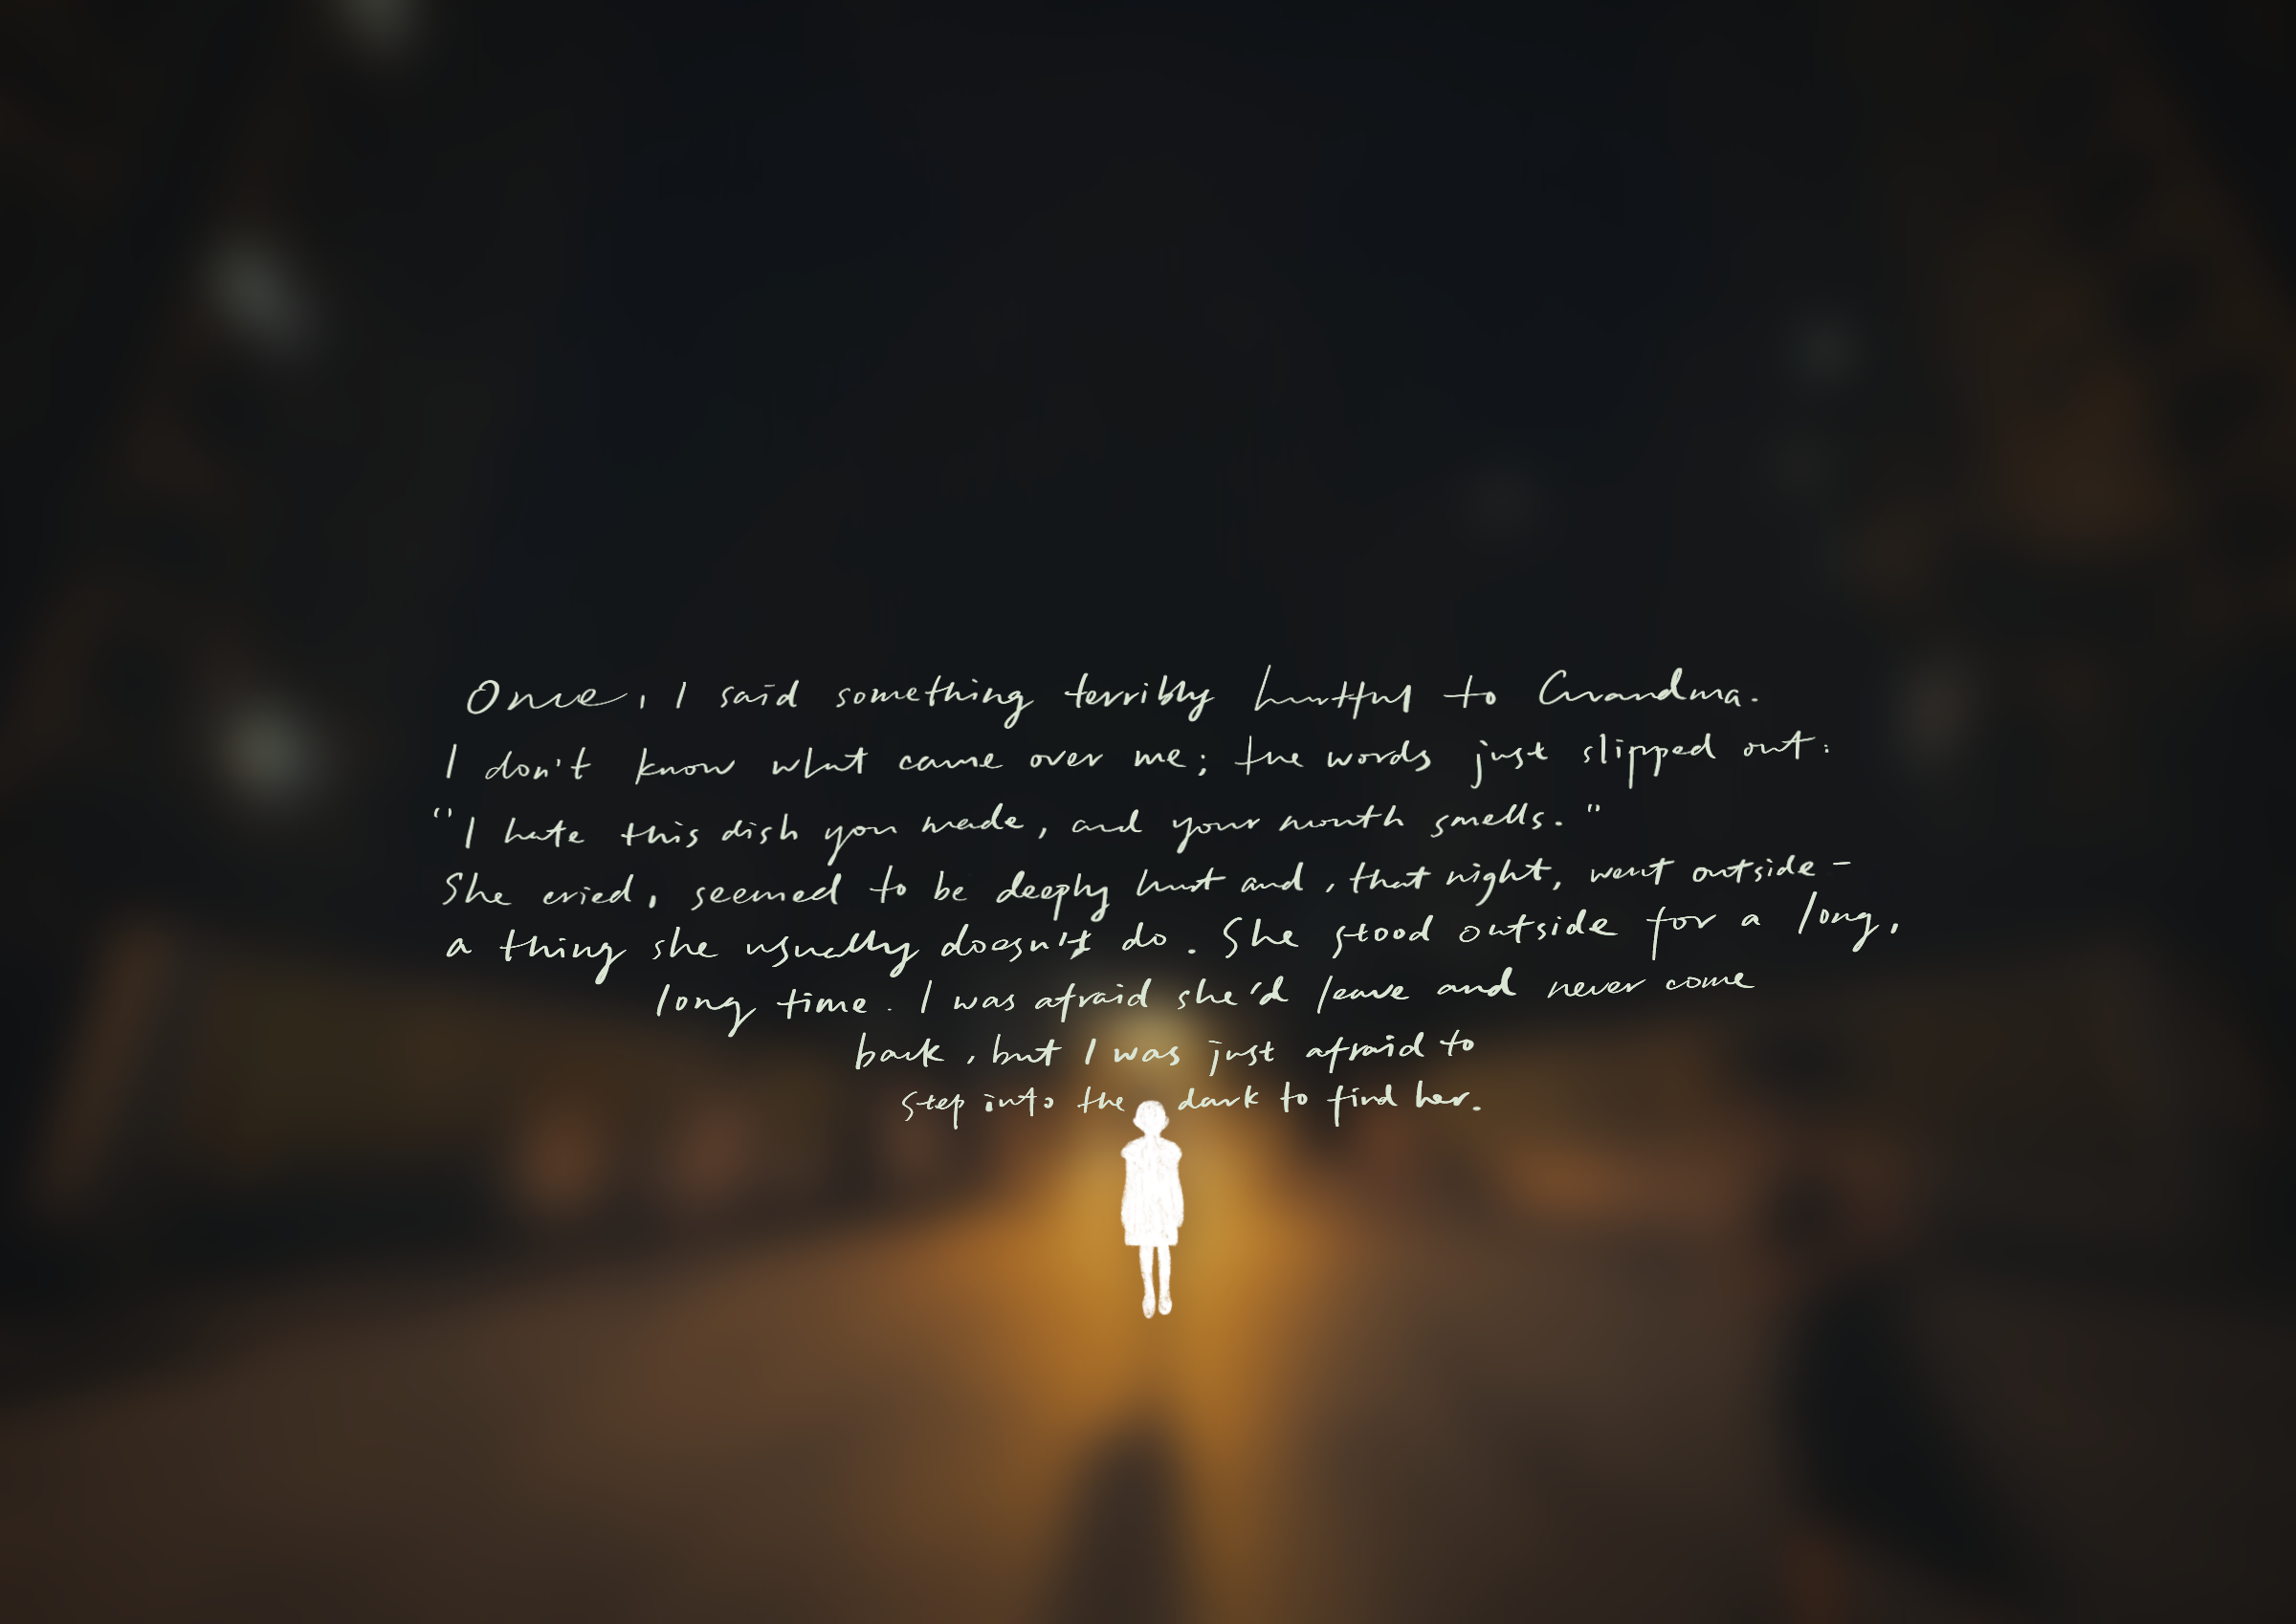 Once, I said something terribly hurtful to Grandma.
I don't know what came over me; the words just slipped out:
"I hate this dish you made, and your mouth smells."
She cried, seemed to be deeply hurt and, that night, went outside -
a thing she usually doesn't do. She stood outside for a long,
long time. I was afraid she'd leave and never come
back, but I was just afraid to
step into the dark to find her.